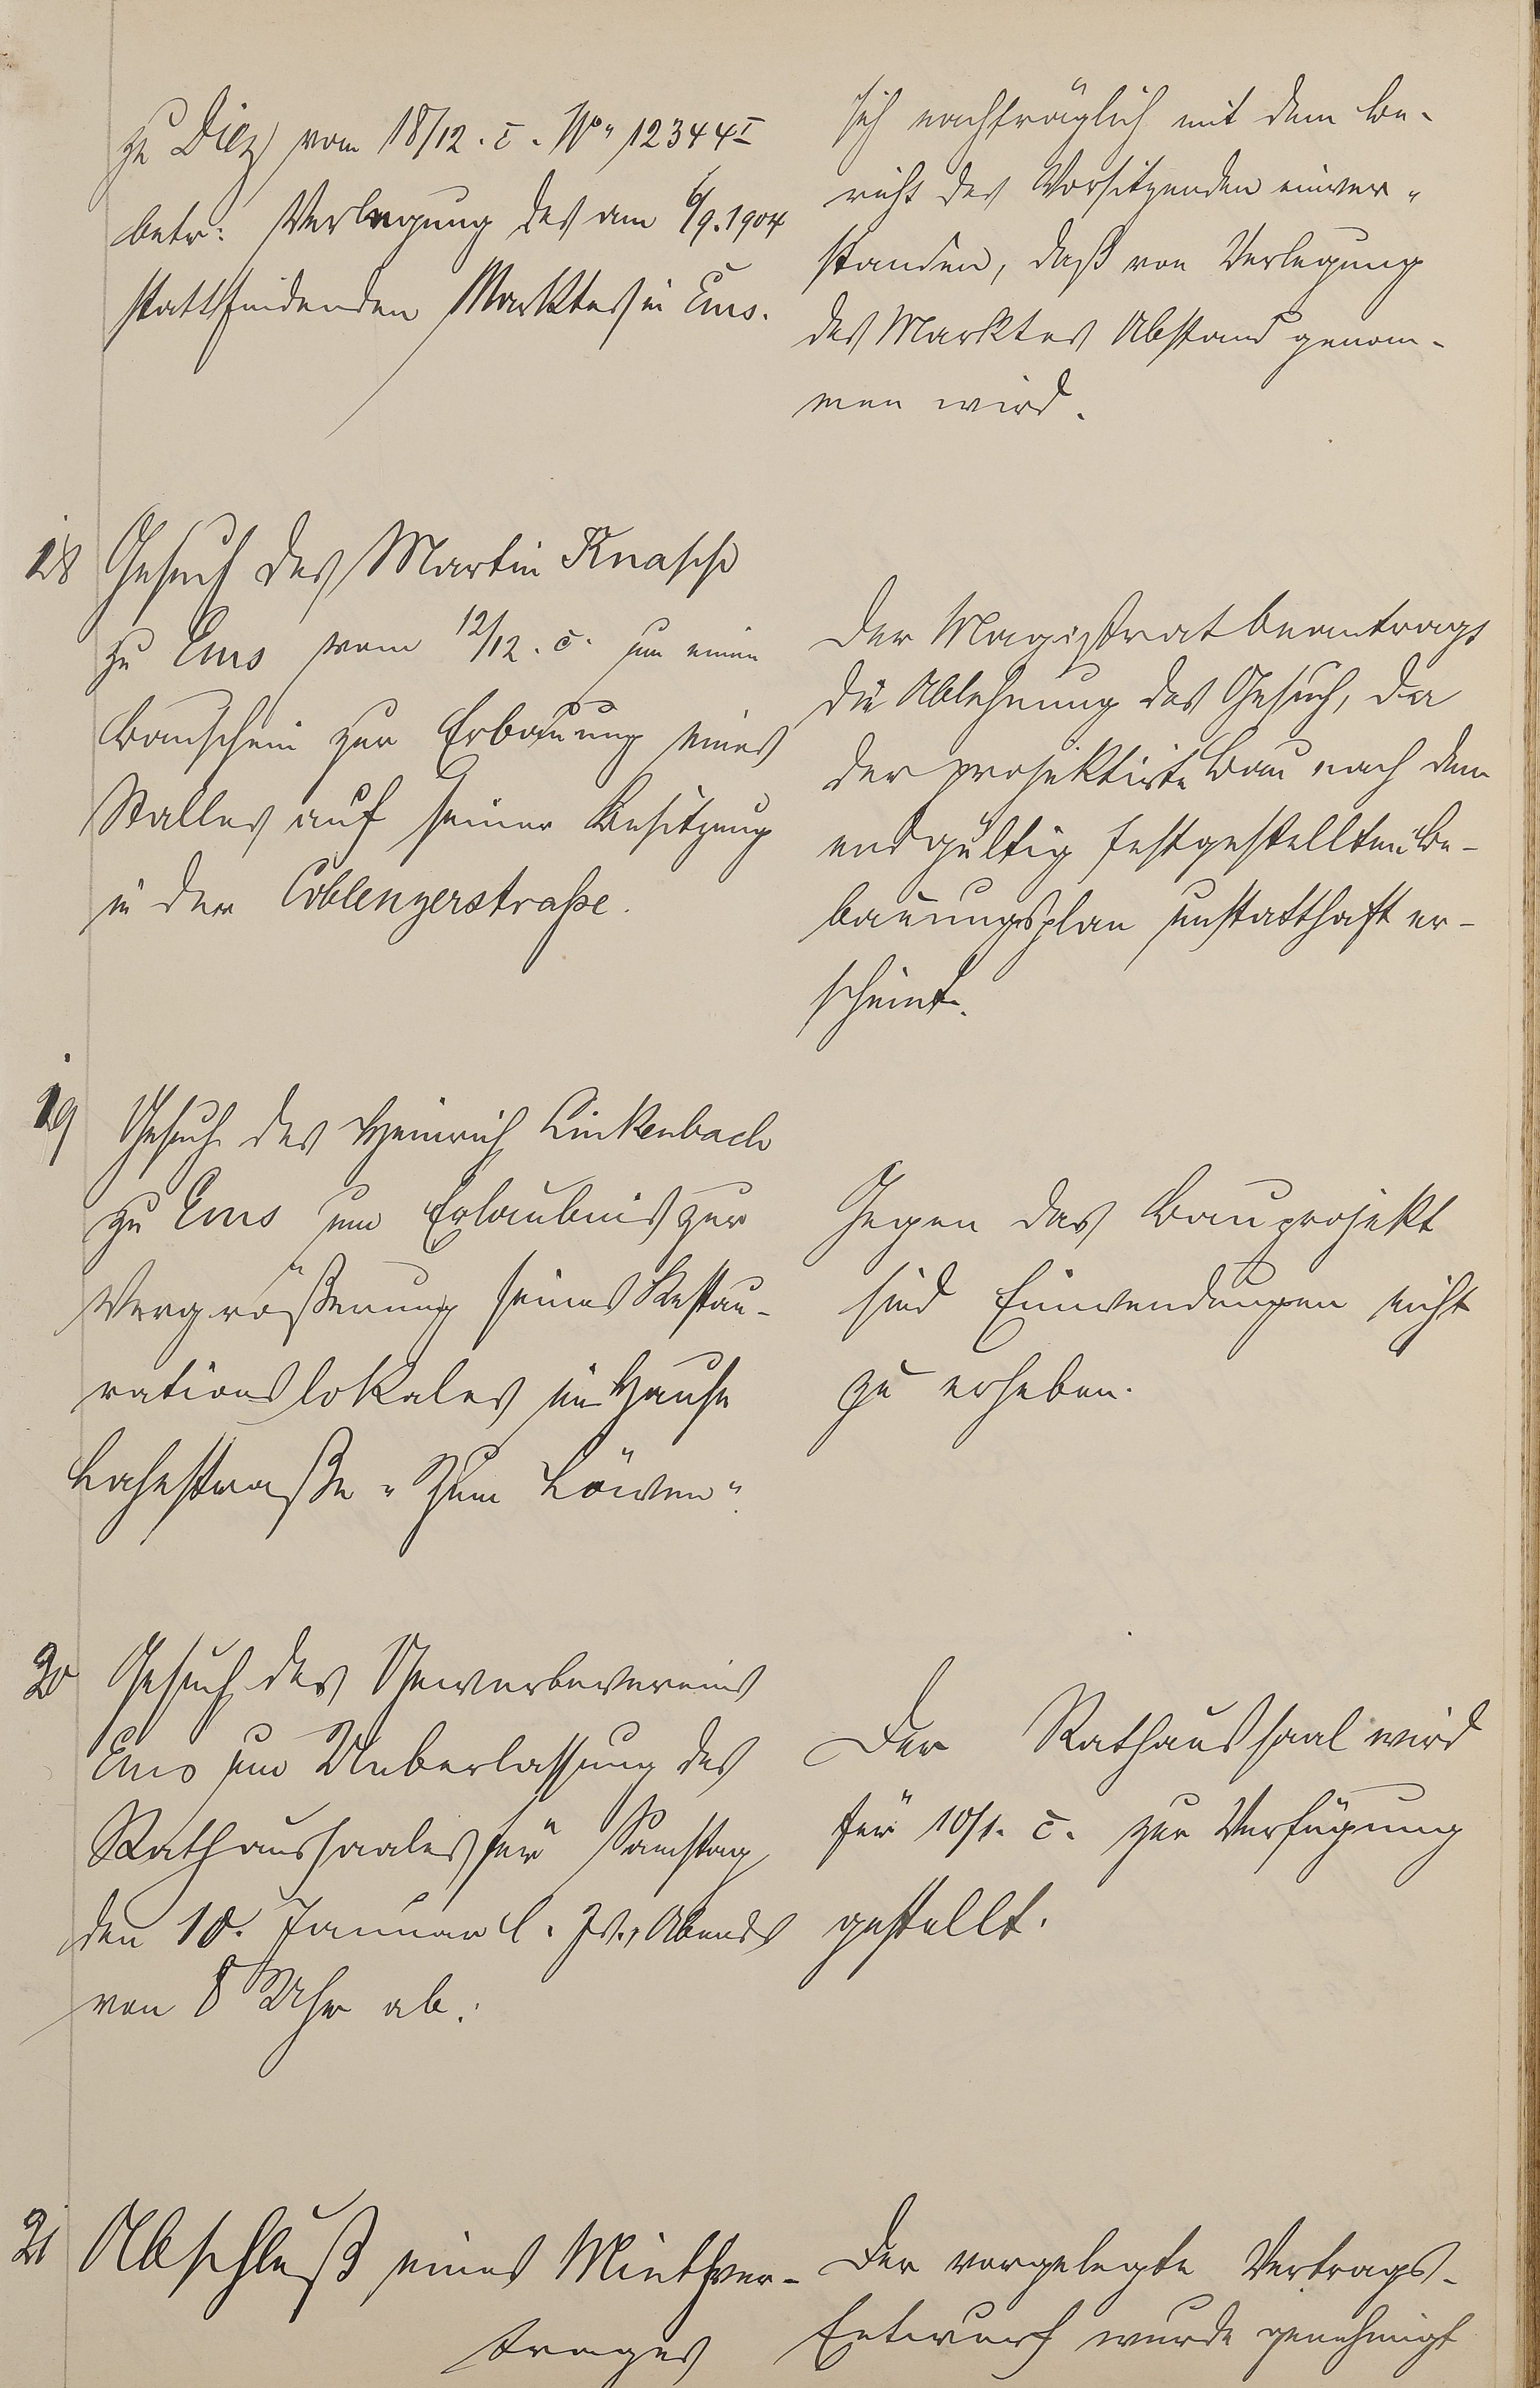 zu Diez vom 18/12. c. No. 12344 I
betr: Verlegung des am 6/9.1904
stattfindenden Marktes in Ems.
sich nachträglich mit dem Be-
richt des Vorsitzenden einver-
standen, daß von Verlegung
des Marktes Abstand genom-
men wird.
18 Gesuch des Martin Knasch
zu Ems vom 12/12. c. um einen
Bauschein zur Erbauung eines
Stalles auf seiner Besitzung
in der Coblenzerstraße.
Der Magistrat beantragt
die Ablehnung des Gesuch, da
der projektirte Bau nach dem
endgültig festgestellten Be-
bauungsplan unstatthaft er-
scheint.
19 Gesuch des Heinrich Linkenbach
zu Ems um Erlaubnis zur
Vergrößerung seines Restau-
rationslokales im Hause
Lahnstraße "Zum Löwen".
Gegen das Bauprojekt
sind Einwendungen nicht
zu erheben.
20 Gesuch des Gewerbevereins
Ems um Ueberlassung des
Rathaussaales für Samstag
den 10. Januar l. Js., Abends
von 8 Uhr ab.
Der Rathaussaal wird
für 10/1. c. zur Verfügung
gestellt.
21 Abschluß eines Miethver-
trages
Der vorgelegte Vertrags-
Entwurf wurde genehmigt